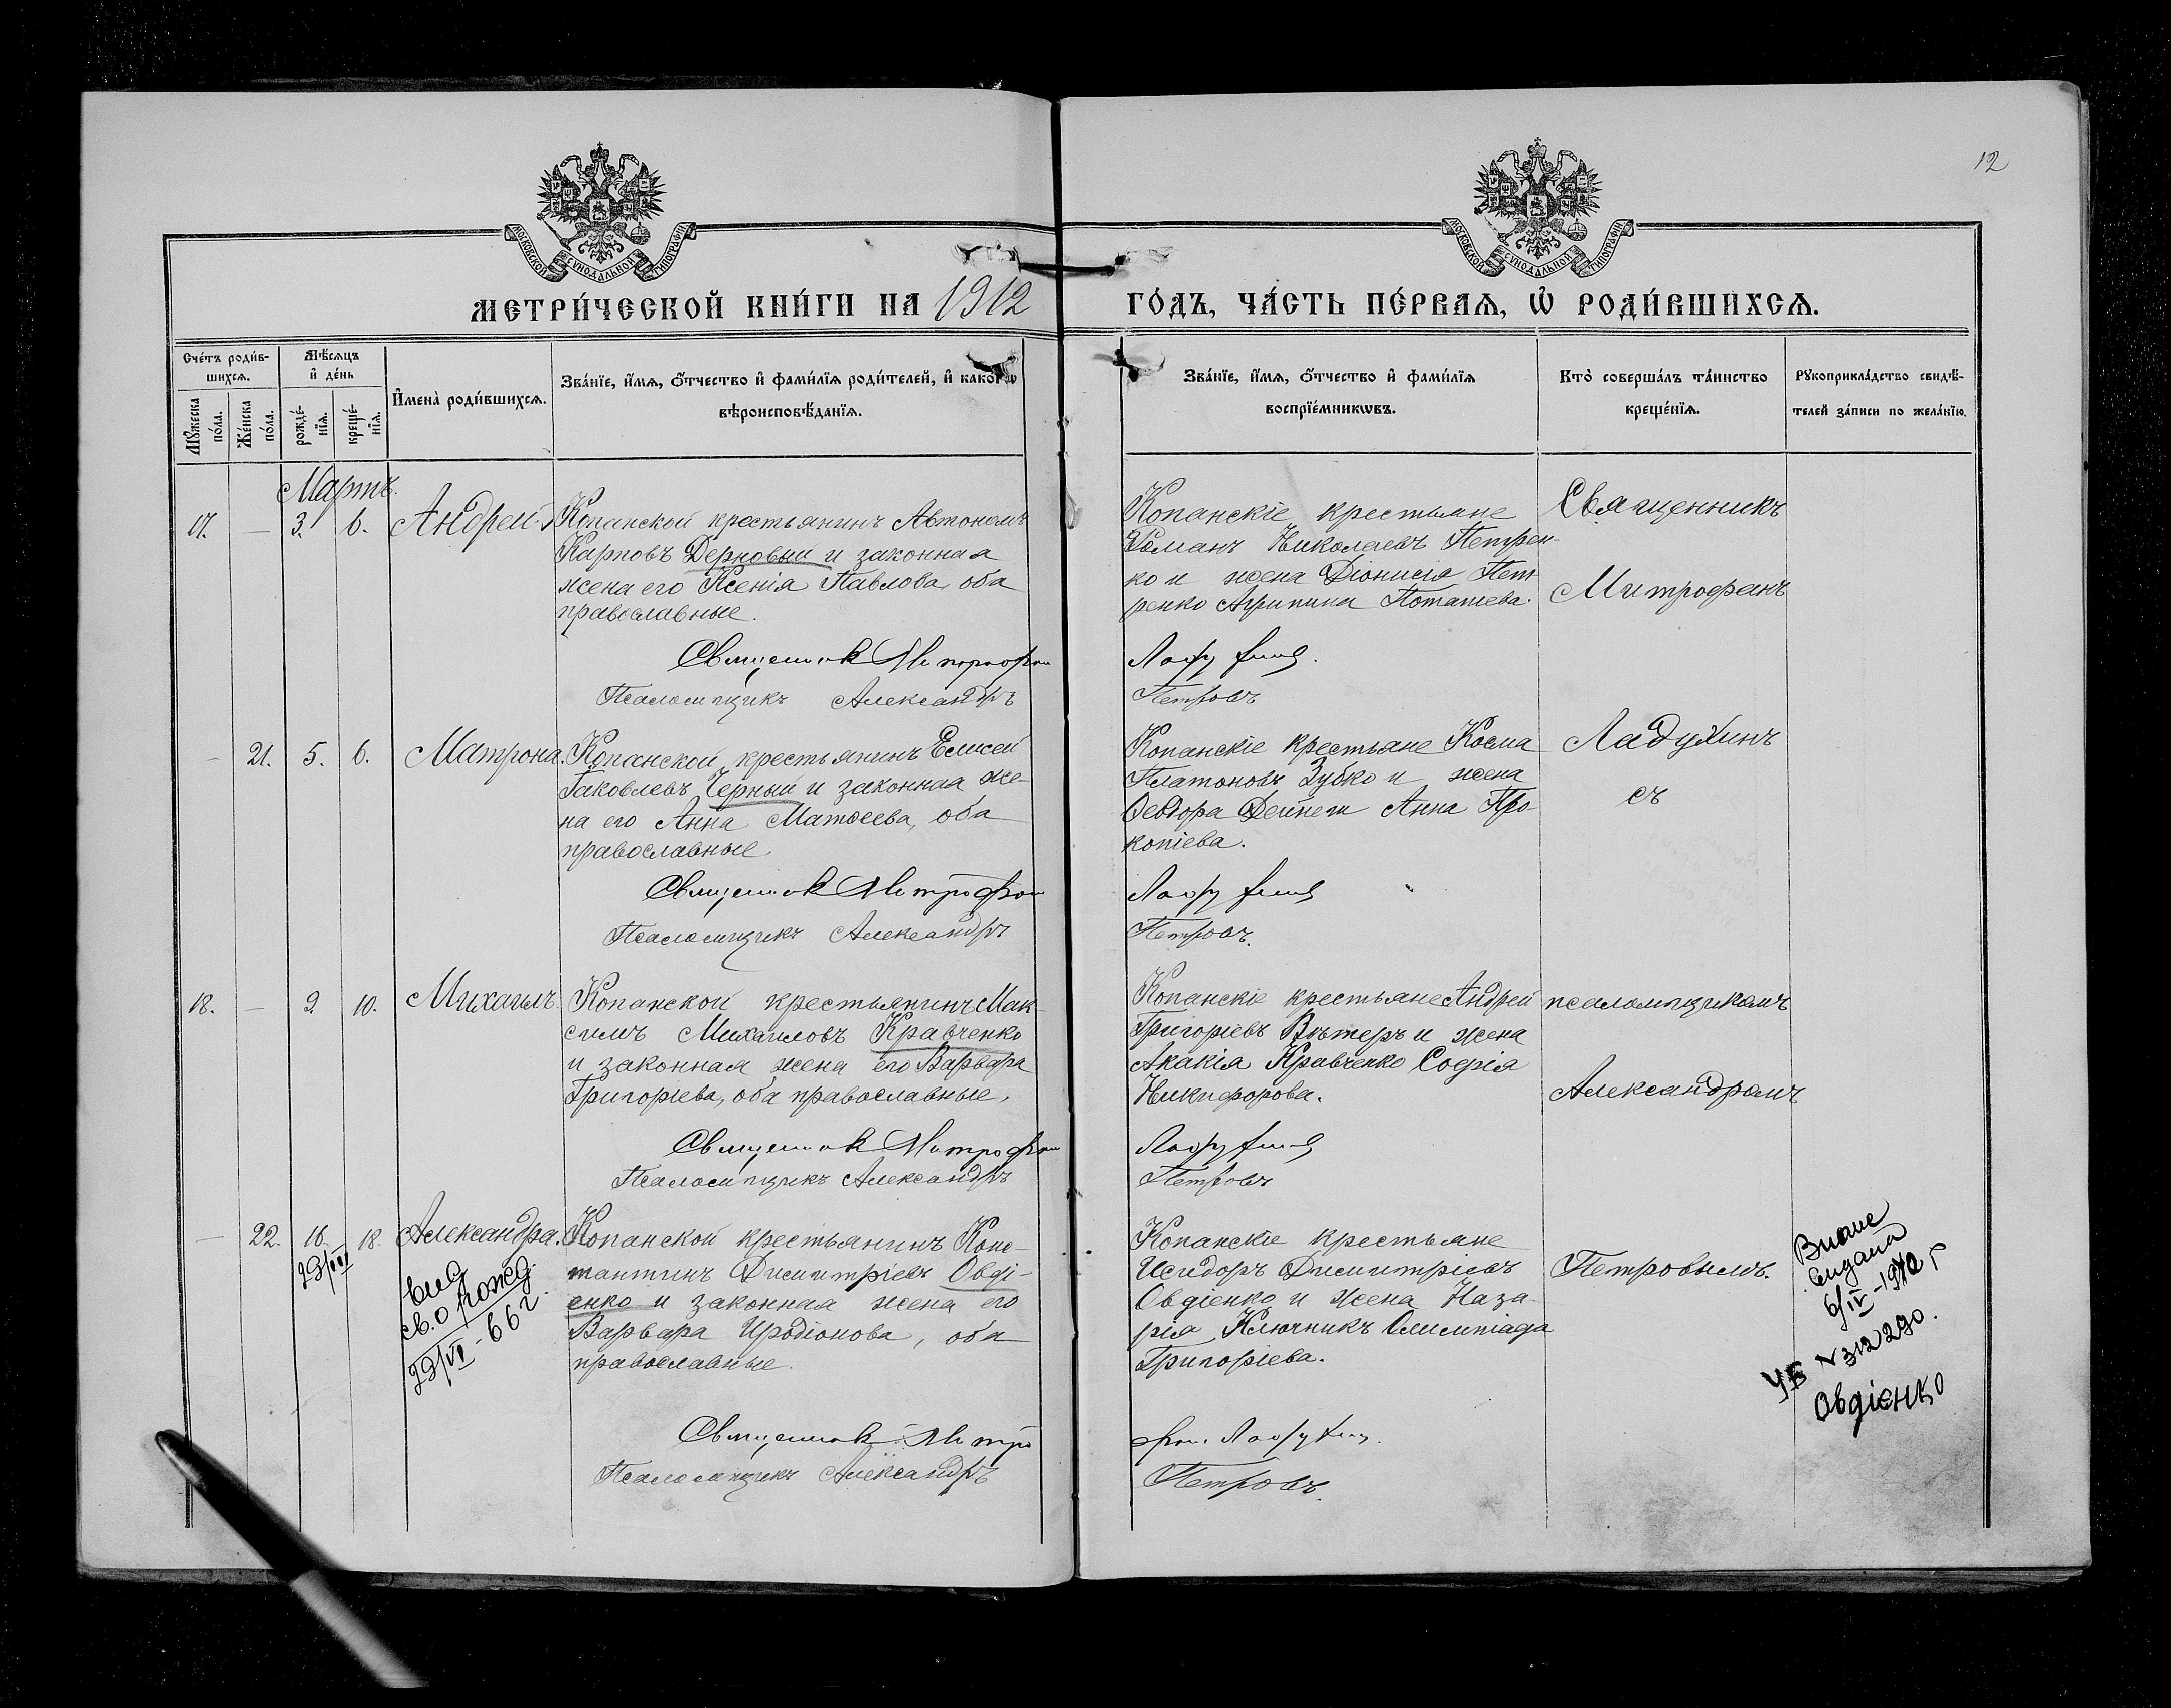 12
МОСКОВСКОЙ СУНОДАЛЬНОЙ ТИПОГРАФІИ
МОСКОВСКОЙ СУНОДАЛЬНОЙ ТИПОГРАФІИ
МЕТРИ́ЧЕСКОЙ КНИ́ГИ НА 1912
ГО́ДЪ, ЧА́СТЬ ПЕ́РВАѦ, Ѽ РОДИ́ВШИХСѦ.
Сче́тъ роди́в-
шихсѧ.
Мꙋ́жеска
по́ла.
Же́нска
по́ла.
Мѣ́сѧцъ
и҆ де́нь
рожде́-
нїѧ.
креще́-
нїѧ.
И҆мена̀ роди́вшихсѧ.
Зва́нїе, и҆́мѧ, ѻ҆́тчество и҆ фами́лїѧ роди́телей, и҆ како́гѡ
вѣроисповѣ́данїѧ.
Зва́нїе, и҆́мѧ, ѻ҆́тчество и҆ фами́лїѧ
воспрїе́мникѡвъ.
Кто̀ соверша́лъ та́инство
креще́нїѧ.
Рꙋкоприкла́дство свидѣ́-
телей за́писи по жела́нїю.
Мартъ.
17. — 3. 6. Андрей.
Копанской крестьянинъ Автономъ
Карповъ Дерновый и законная
жена его Ксенія Павлова, оба
православные.
Священник Митрофан
Псаломщикъ Александръ
Копанскіе крестьяне
Романъ Николаевъ Петрен-
ко и жена Діонисія Пет
ренко Агрипина Потапіева.
Ладухинъ.
Петровъ
Священникъ
Митрофанъ
— 21. 5. 6. Матрона.
Копанской крестьянинъ Елисей
Іаковлевъ Черный и законная же-
на его Анна Матѳеева, оба
православные.
Священник Митрофан
Псаломщикъ Александръ
Копанскіе крестьяне Косма
Платоновъ Зубко и жена
Ѳеодора Дейнеги Анна Про-
копіева.
Ладухинъ
Петровъ.
Ладухинъ
съ
18. — 9. 10. Михаилъ.
Копанской крестьянинъ Мак-
симъ Михаиловъ Кравченко
и законная жена его Варвара
Григоріева, оба православные.
Священник Митрофан
Псаломщикъ Александръ
Копанскіе крестьяне Андрей
Григоріевъ Вѣтеръ и жена
Акакія Кравченко Софія
Никифорова.
Ладухинъ
Петровъ
псаломщикомъ
Александромъ
— 22. 16. 18. Александра.
23/III
вид
св. о рожд.
23/VI-66 г.
Копанской крестьянинъ Конс-
тантинъ Димитріевъ Овді-
енко и законная жена его
Варвара Иродіонова, оба
православные.
Священник Митро
Псаломщикъ Александръ
Копанскіе крестьяне
Исидоръ Димитріевъ
Овдіенко и жена Наза-
рія Ключникъ Олимпіада
Григоріева.
фан Ладухин.
Петровъ.
Петровымъ.
6/IV-1972 г
УБ N 312290.
Овдієнко